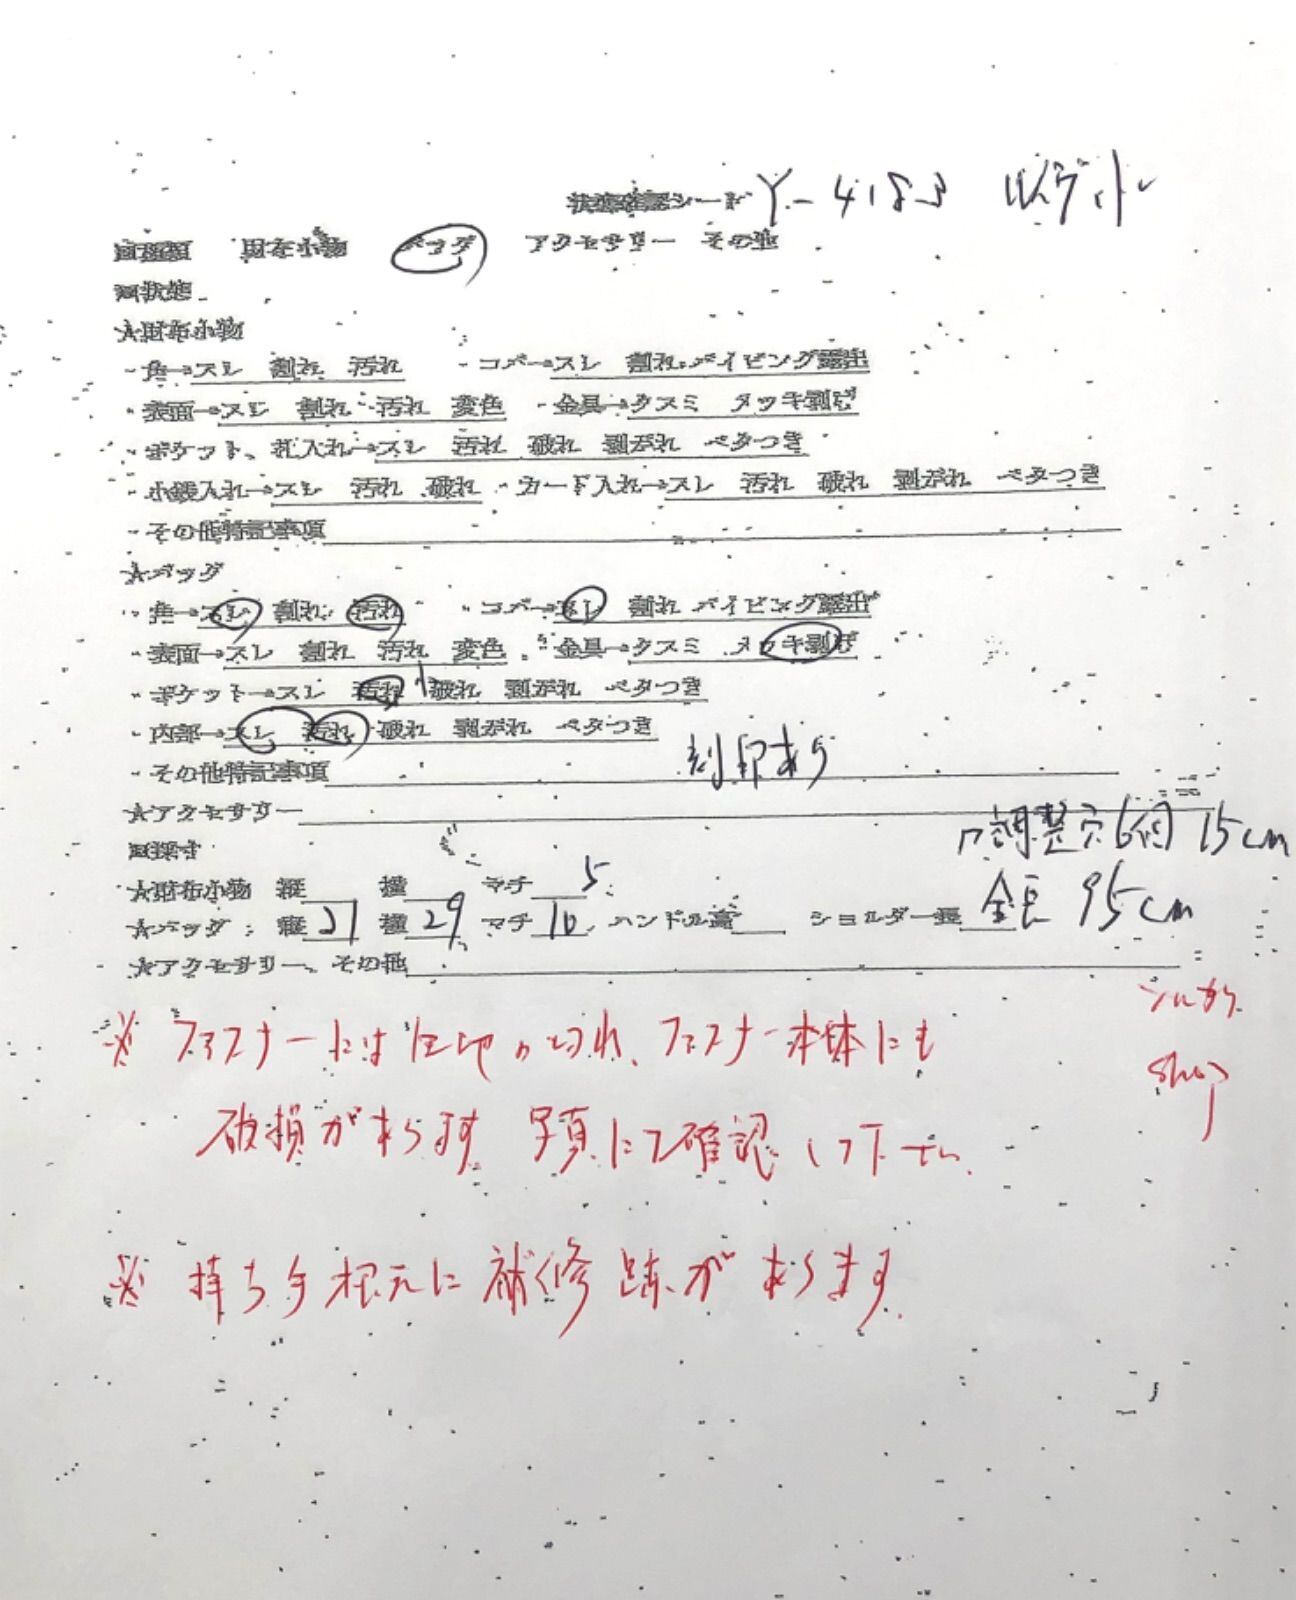 状態確認シード Y-4183 ルイヴィトン
財布小物 バッグ アクセサリー その他
状態
★財布小物
・角→スレ 割れ 汚れ ・コバ→スレ 割れ パイピング露出
・表面→スレ 割れ 汚れ 変色 ・金具→クスミ メッキ剥げ
・ポケット、札入れ→スレ 汚れ 破れ 剥がれ ベタつき
・小銭入れ→スレ 汚れ 破れ ・カード入れ→スレ 汚れ 破れ 剥がれ ベタつき
・その他特記事項
★バッグ
・角→スレ 割れ 汚れ ・コバ→スレ 割れ パイピング露出
・表面→スレ 割れ 汚れ 変色 ・金具→クスミ メッキ剥げ
・ポケット→スレ 汚れ 破れ 剥がれ ベタつき
・内部→スレ 汚れ 破れ 剥がれ ベタつき
・その他特記事項 刻印あり
★アクセサリー
調整穴6個 15cm
採寸
★財布小物 縦 横 マチ 5
★バッグ: 縦 21 横 29 マチ 10 ハンドル高 ショルダー長 全長 95cm
★アクセサリー、その他
※ ファスナーには生地の切れ、ファスナー本体にも
破損があります 写真にて確認して下さい
shop
※ 持ち手根元に補修跡があります